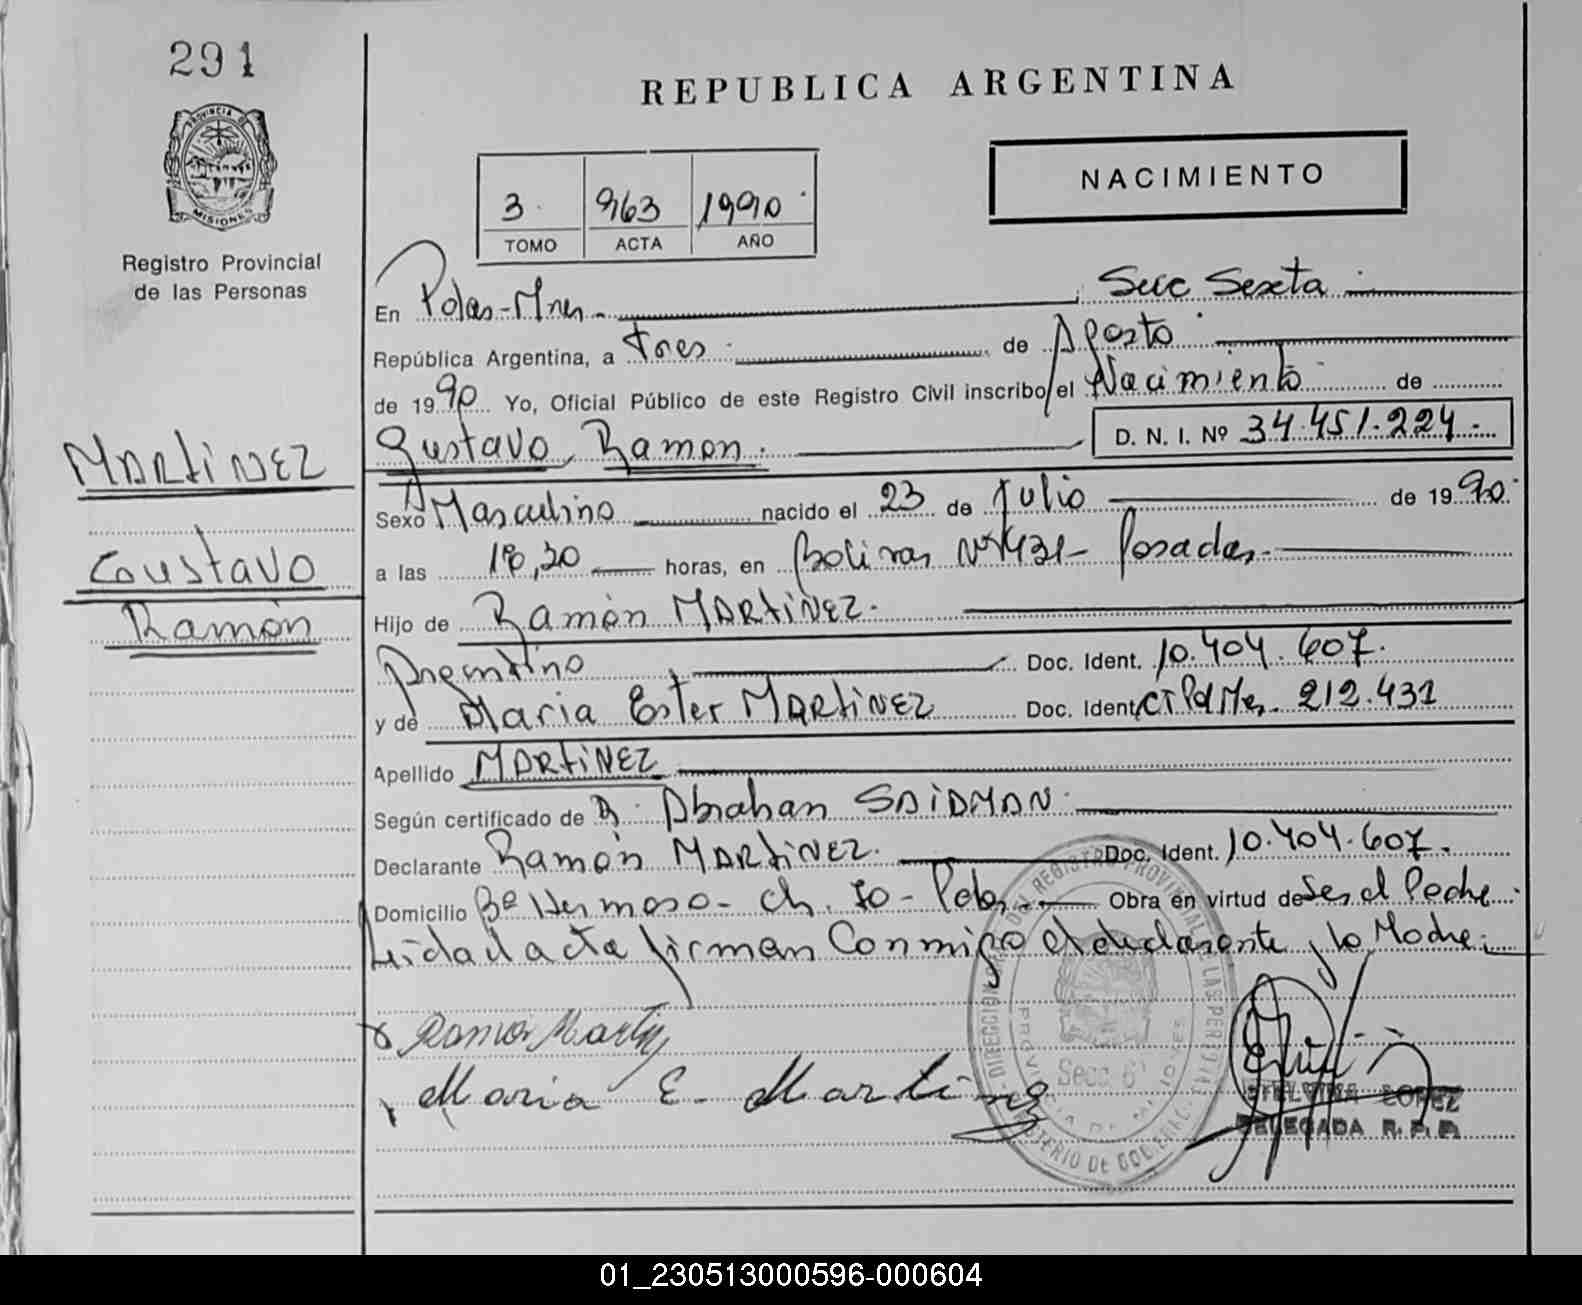 291
REPUBLICA ARGENTINA
PROVINCIA DE
MISIONES
Registro Provincial
de las Personas
NACIMIENTO
3 963 1990
TOMO ACTA AÑO
En Pdas-Mnes. Secc Sexta
República Argentina, a Tres de Agosto
de 1990 Yo, Oficial Público de este Registro Civil inscribo el Nacimiento de
MARTINEZ
Gustavo Ramón
Gustavo, Ramon. D. N. I. Nº 34.451.224.-
Sexo Masculino nacido el 23 de Julio de 1990.
a las horas, en Bolivar Nº Posadas.-
Hijo de Ramón MARTINEZ.
Argentino Doc. Ident. 10.404.607.
y de Maria Ester MARTINEZ Doc. Ident. CI Pd Mes. 212.431
Apellido MARTINEZ
Según certificado de Dr. Abrahan SAIDMAN.
Declarante Ramón MARTINEZ. Doc. Ident. 10.404.607.
Domicilio Bº Hermoso- Ch. - Pdas.- Obra en virtud de Ser el Padre.
Leida el acta firman Conmigo el declarante y la Madre.
Ramon
Maria E. Martinez
DIRECCION REGISTRO PROVINCIAL DE LAS PERSONAS
PROVINCIA DE MISIONES
Secc. 6ª
MINISTERIO DE GOBIERNO
ETELVINA LOPEZ
DELEGADA R. P. P.
01_230513000596-000604